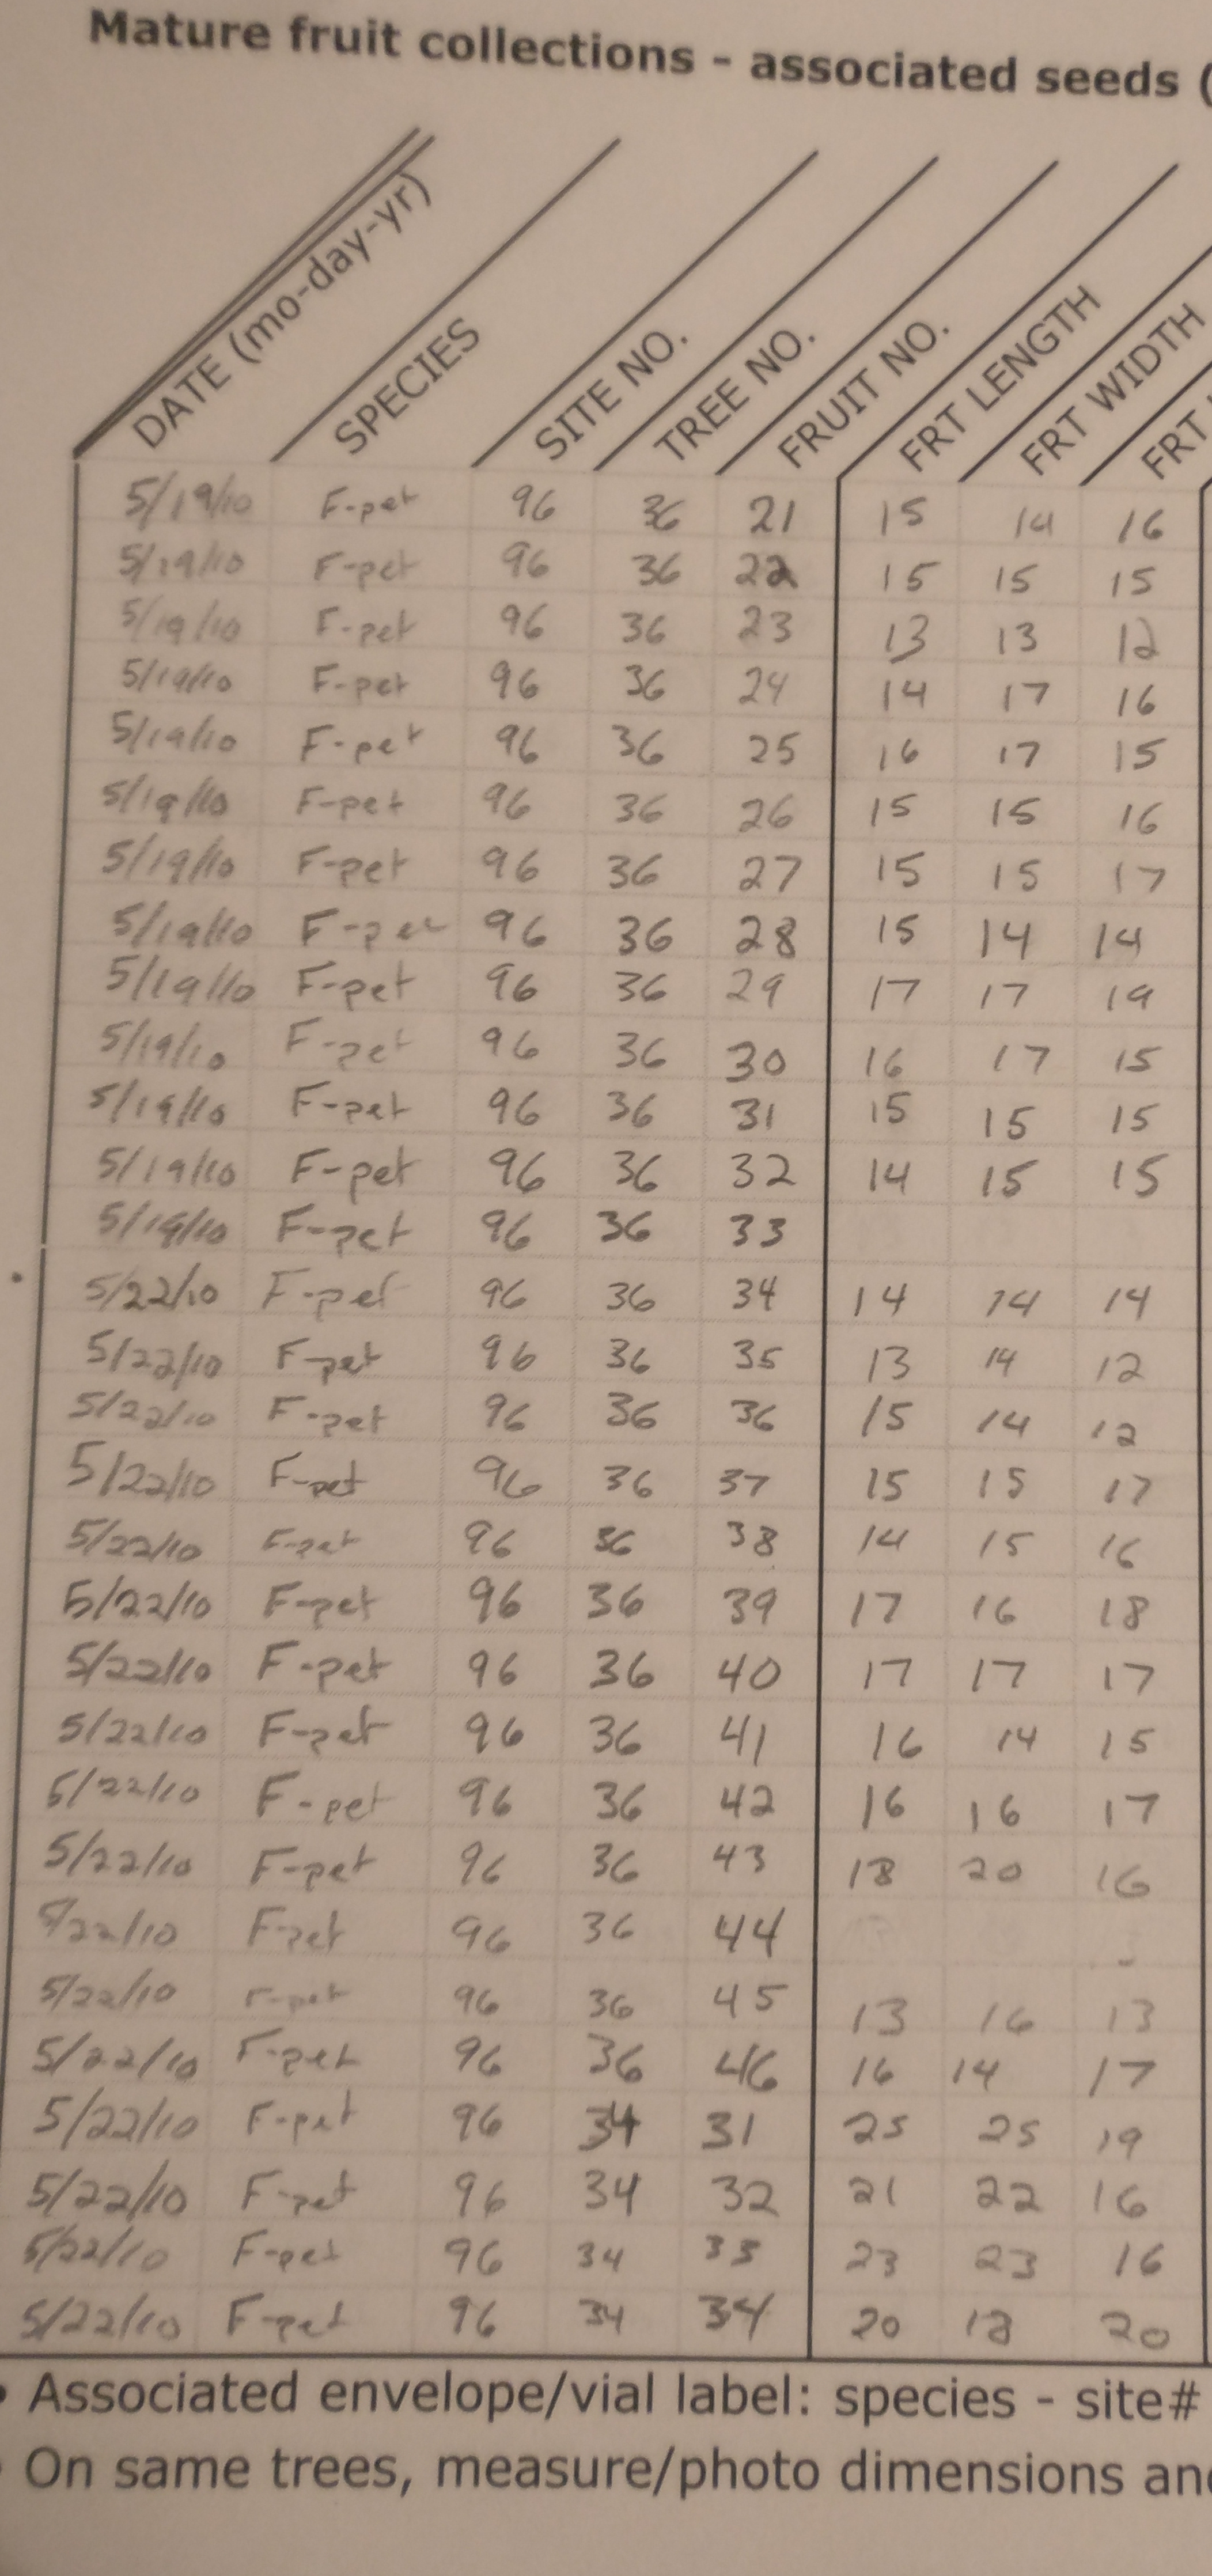 Mature fruit collections - associated seeds (
DATE (mo-day-yr) SPECIES SITE NO. TREE NO. FRUIT NO. FRT LENGTH FRT WIDTH FRT
5/19/10 F-pet 96 36 21 15 14 16
5/19/10 F-pet 96 36 22 15 15 15
5/19/10 F-pet 96 36 23 13 13 12
5/19/10 F-pet 96 36 24 14 17 16
5/19/10 F-pet 96 36 25 16 17 15
5/19/10 F-pet 96 36 26 15 15 16
5/19/10 F-pet 96 36 27 15 15 17
5/19/10 F-pet 96 36 28 15 14 14
5/19/10 F-pet 96 36 29 17 17 19
5/19/10 F-pet 96 36 30 16 17 15
5/19/10 F-pet 96 36 31 15 15 15
5/19/10 F-pet 96 36 32 14 15 15
5/19/10 F-pet 96 36 33
5/22/10 F-pet 96 36 34 14 14 14
5/22/10 F-pet 96 36 35 13 14 12
5/22/10 F-pet 96 36 36 15 14 12
5/22/10 F-pet 96 36 37 15 15 17
5/22/10 F-pet 96 36 38 14 15 16
5/22/10 F-pet 96 36 39 17 16 18
5/22/10 F-pet 96 36 40 17 17 17
5/22/10 F-pet 96 36 41 16 14 15
5/22/10 F-pet 96 36 42 16 16 17
5/22/10 F-pet 96 36 43 18 20 16
5/22/10 F-pet 96 36 44
5/22/10 F-pet 96 36 45 13 16 13
5/22/10 F-pet 96 36 46 16 14 17
5/22/10 F-pet 96 34 31 25 25 19
5/22/10 F-pet 96 34 32 21 22 16
5/22/10 F-pet 96 34 33 23 23 16
5/22/10 F-pet 96 34 34 20 18 20
• Associated envelope/vial label: species - site#
On same trees, measure/photo dimensions and